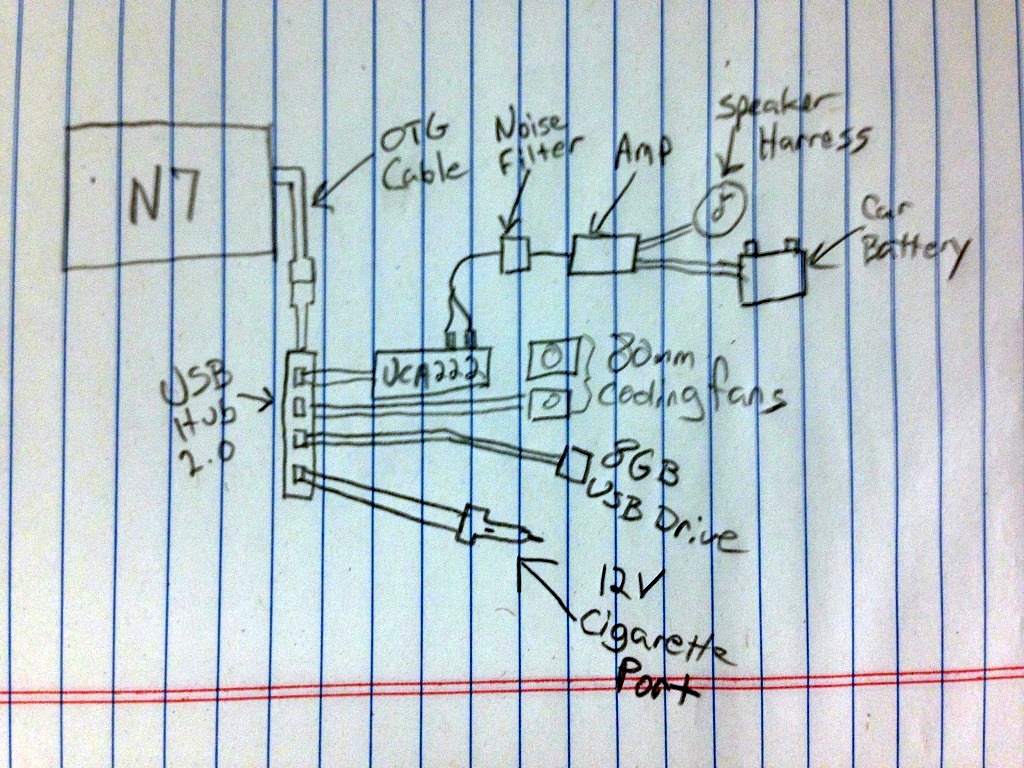 N7
OTG
Cable
Noise
Filter
Amp
Speaker
Harness
Car
Battery
USB
Hub
2.0
UCA222
80mm
Cooling fans
8GB
USB Drive
12V
Cigarette
Port